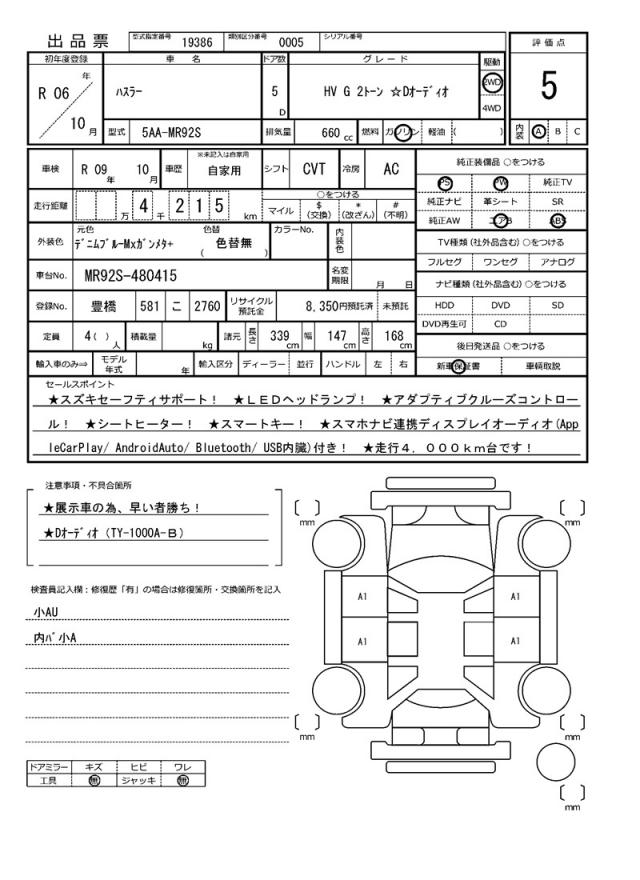 出品票 型式指定番号 19386 類別区分番号 0005 シリアル番号
初年度登録 車名 ドア数 グレード 駆動 評価点
R 06 年 10 月 ハスラー 5 D HV G 2トーン ☆Dオーディオ 2WD 4WD 5
型式 5AA-MR92S 排気量 660 cc 燃料 ガソリン 軽油 ( ) 内装 A B C
車検 R 09 年 10 月 車歴 ※未記入は自家用 自家用 シフト CVT 冷房 AC
走行距離 万 4 千 2 1 5 km ○をつける マイル $ (交換) * (改ざん) # (不明)
外装色 元色 デニムブルーMxガンメタ+ 色替 ( 色替無 ) カラーNo. 内装色
車台No. MR92S-480415 名変期限 月 日
登録No. 豊橋 581 こ 2760 リサイクル預託金 8,350円預託済 未預託
定員 4( ) 人 積載量 kg 諸元 長さ 339 cm 幅 147 cm 高さ 168 cm
輸入車のみ⇒ モデル年式 年 輸入区分 ディーラー 並行 ハンドル 左 右
純正装備品 ○をつける
PS PW 純正TV
純正ナビ 革シート SR
純正AW エアB ABS
TV種類 (社外品含む) ○をつける
フルセグ ワンセグ アナログ
ナビ種類 (社外品含む) ○をつける
HDD DVD SD
DVD再生可 CD
後日発送品 ○をつける
新車保証書 車輌取説
セールスポイント
★スズキセーフティサポート! ★LEDヘッドランプ! ★アダプティブクルーズコントロー
ル! ★シートヒーター! ★スマートキー! ★スマホナビ連携ディスプレイオーディオ(App
leCarPlay/ AndroidAuto/ Bluetooth/ USB内臓)付き! ★走行4.000km台です!
注意事項・不具合箇所
★展示車の為、早い者勝ち!
★Dオーディオ (TY-1000A-B)
検査員記入欄:修復歴「有」の場合は修復箇所・交換箇所を記入
小AU
内バ小A
ドアミラー キズ ヒビ ワレ
工具 無 ジャッキ 無
[ ] mm [ ] mm
A1 A1
A1 A1
[ ] mm [ ] mm
[ ] mm